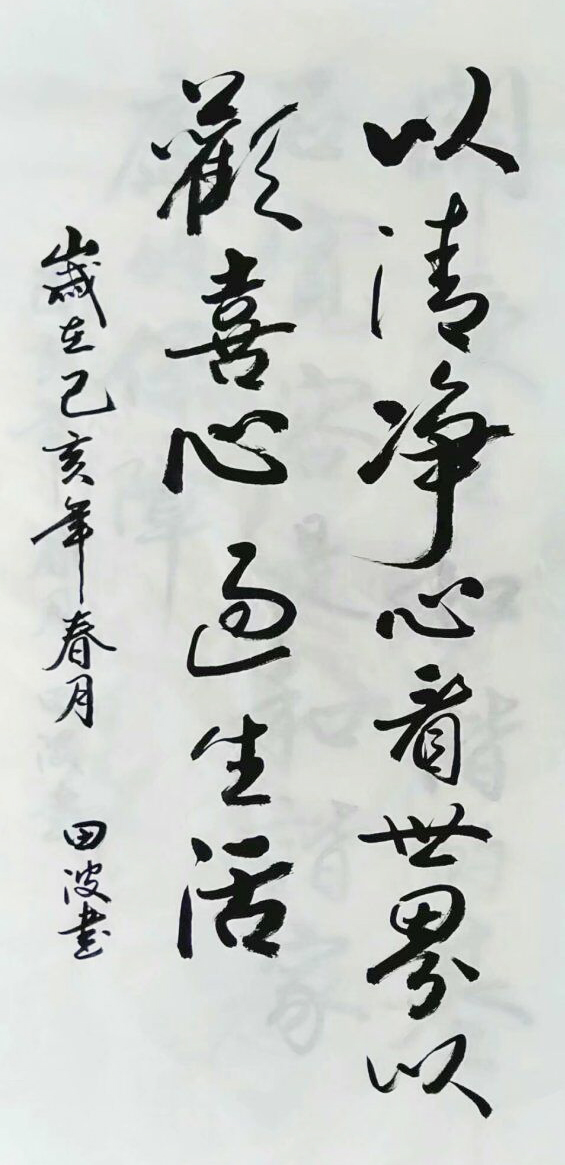 以清净心看世界以
歡喜心过生活
歲在己亥年春月
田波书